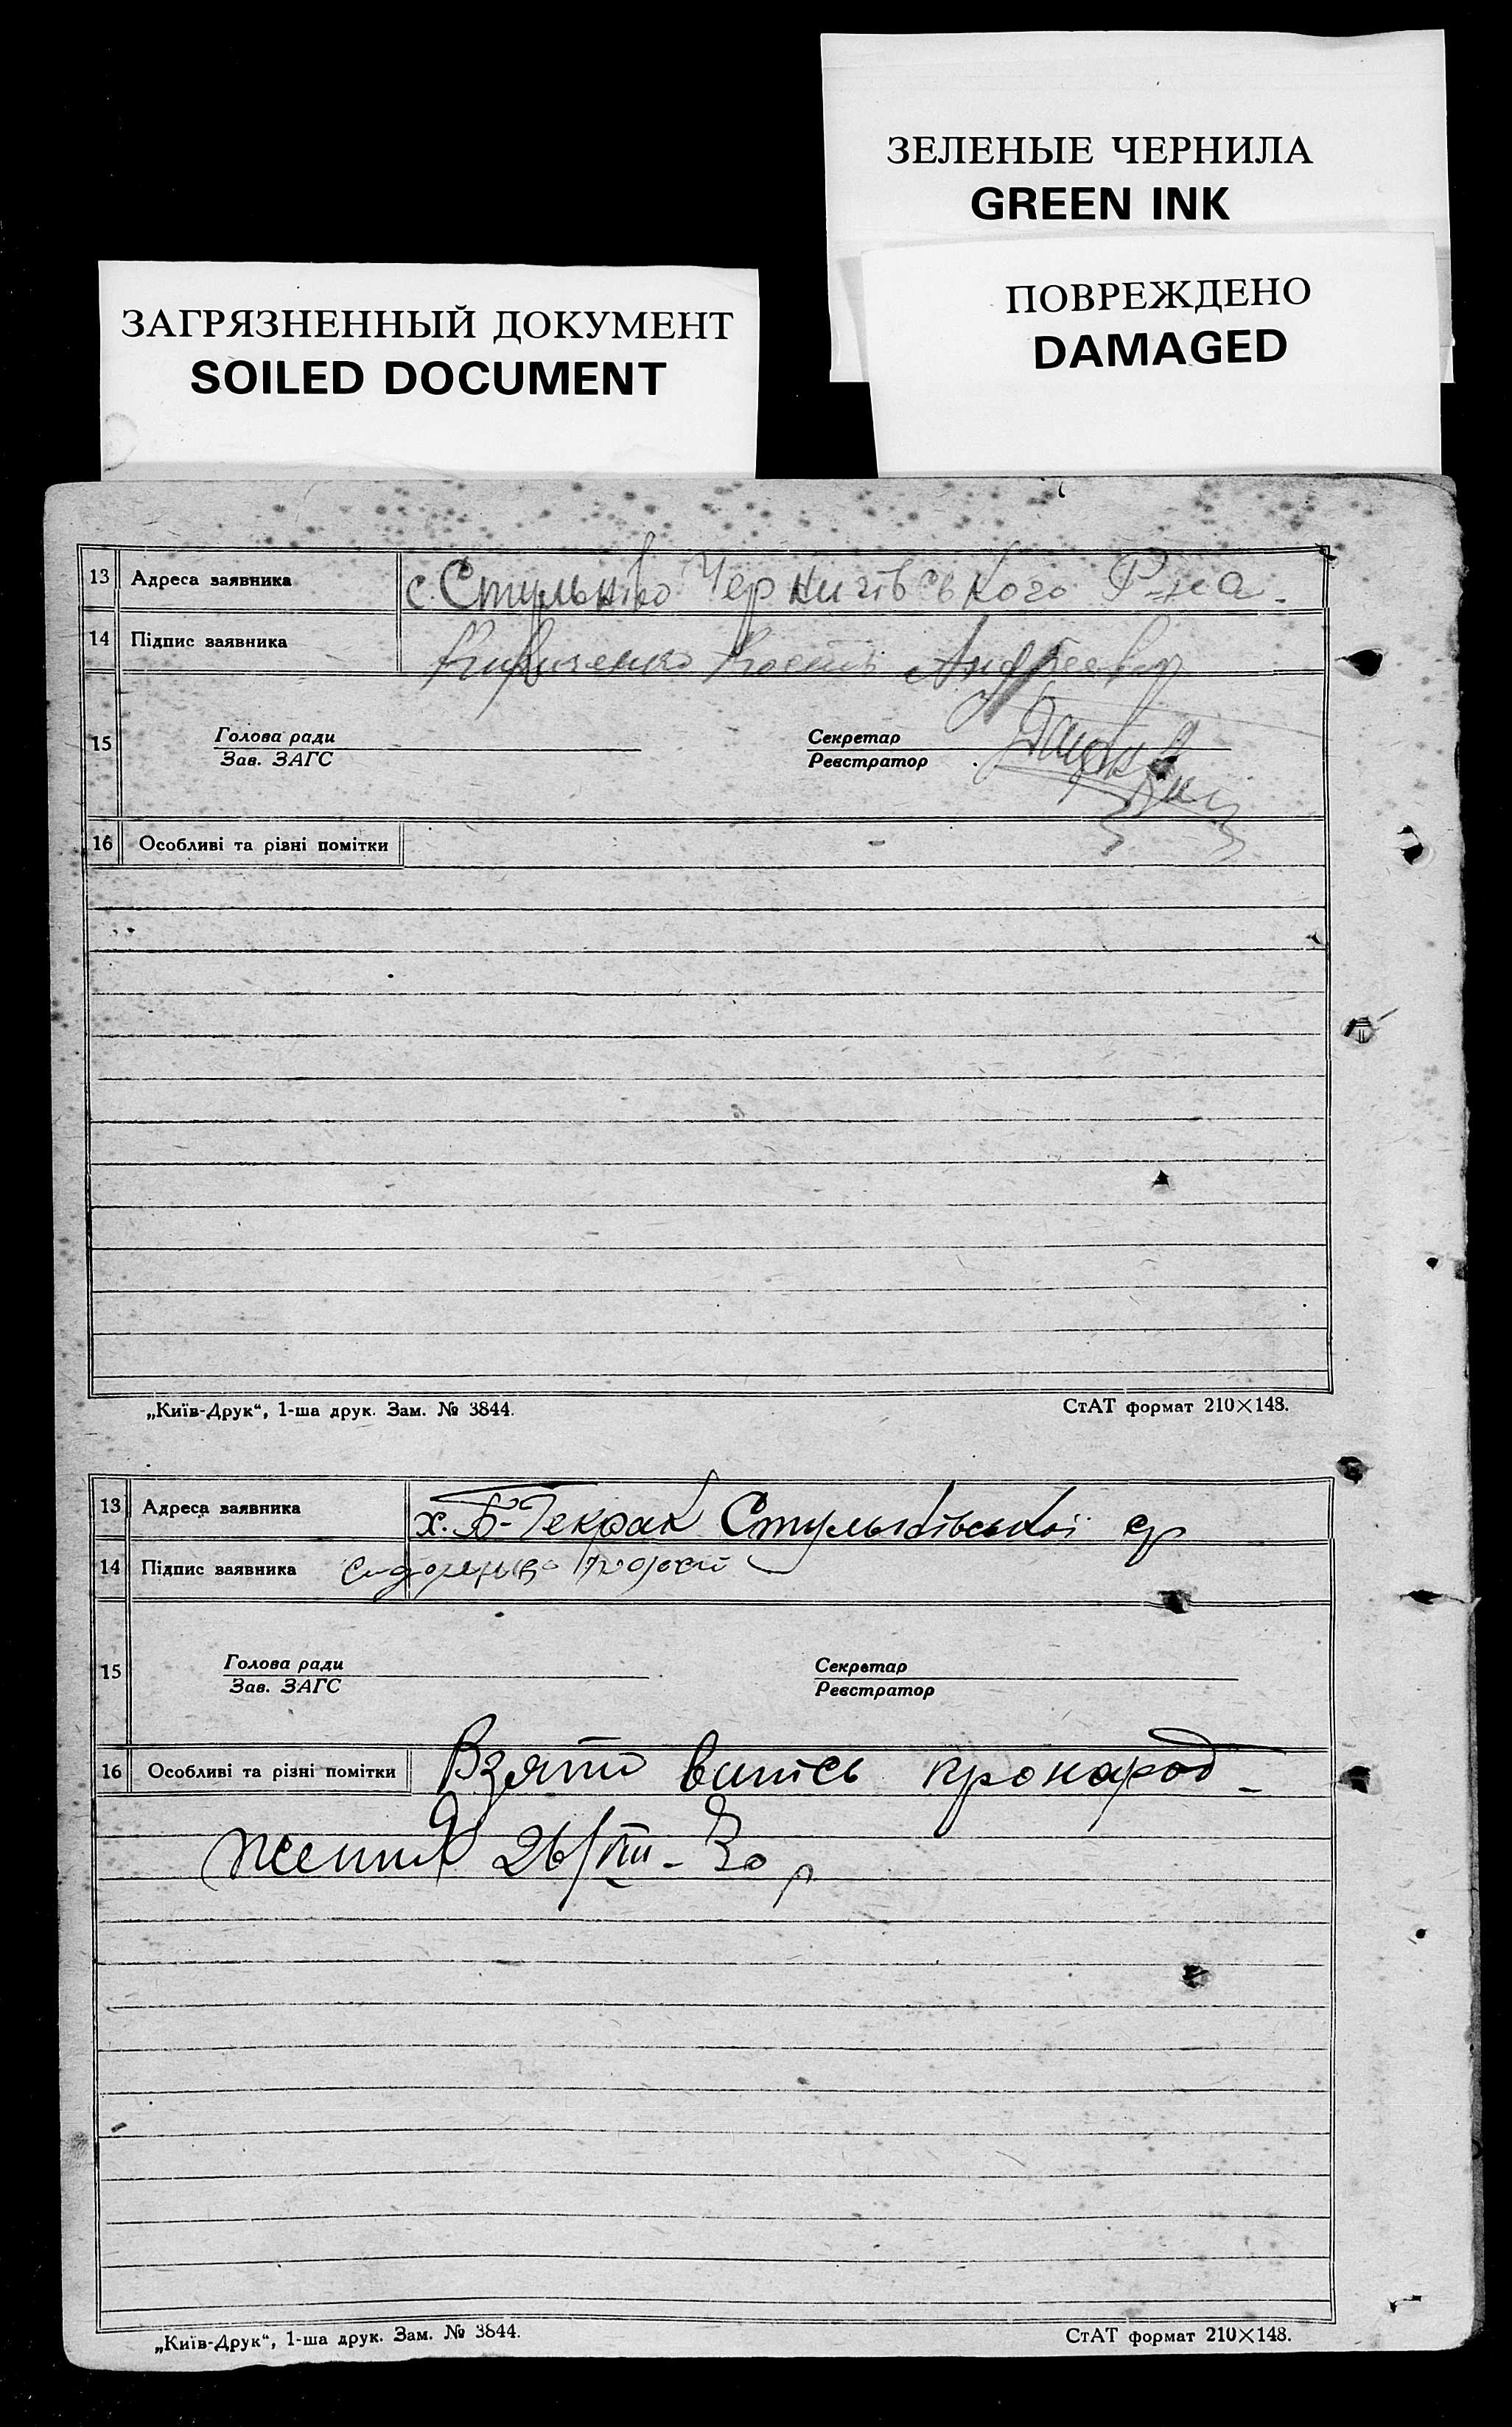 ЗЕЛЕНЫЕ ЧЕРНИЛА
GREEN INK
ПОВРЕЖДЕНО
DAMAGED
ЗАГРЯЗНЕННЫЙ ДОКУМЕНТ
SOILED DOCUMENT
13 Адреса заявника с. Стульнево Чернигівського Р-на.
14 Підпис заявника
15 Голова ради Секретар
Зав. ЗАГС Реєстратор
16 Особливі та різні помітки
„Київ-Друк“, 1-ша друк. Зам. № 3844. СтАТ формат 210×148.
13 Адреса заявника х. Б-Текрак Стульнівської ср
14 Підпис заявника
15 Голова ради Секретар
Зав. ЗАГС Реєстратор
16 Особливі та різні помітки Взято випісь про народ-
ження 26/VIII-30 р
„Київ-Друк“, 1-ша друк. Зам. № 3844. СтАТ формат 210×148.